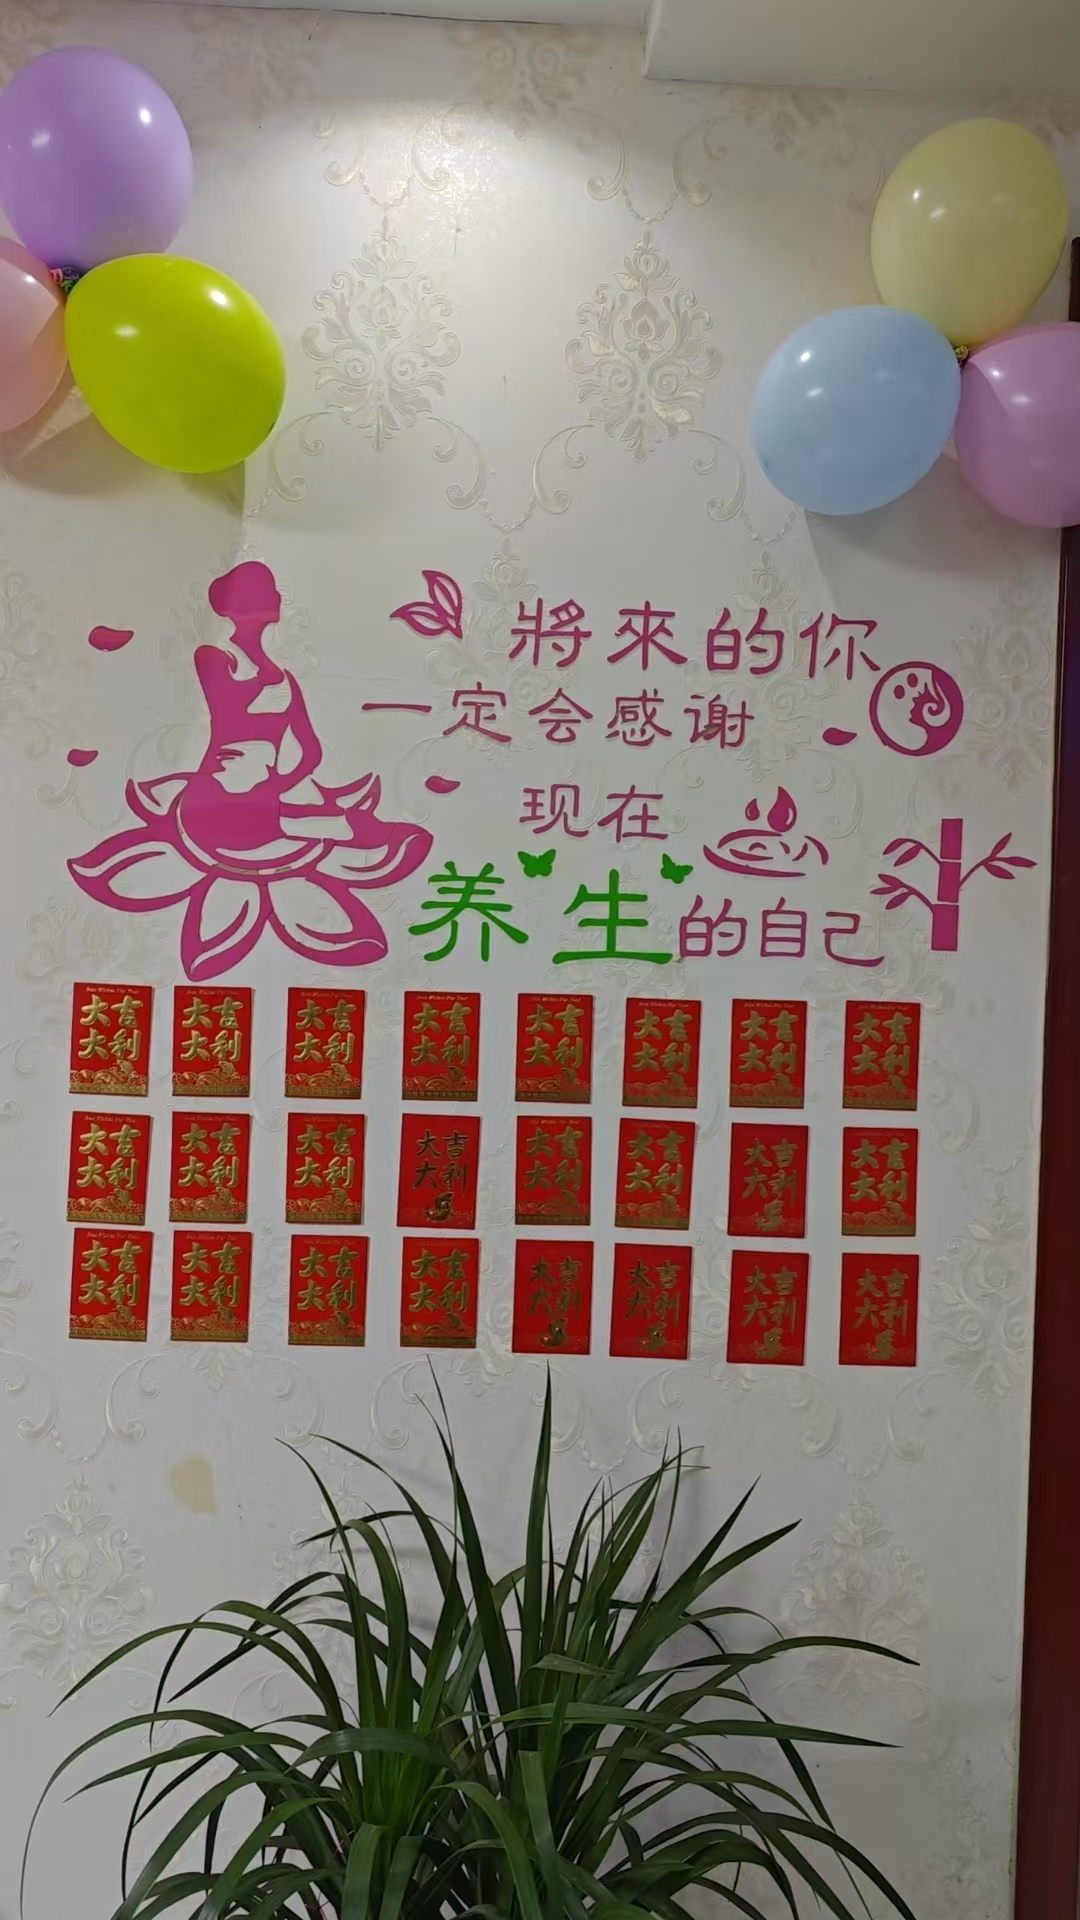 將來的你
一定会感谢
现在
养生的自己
大吉
大利
大吉
大利
大吉
大利
大吉
大利
大吉
大利
大吉
大利
大吉
大利
大吉
大利
大吉
大利
大吉
大利
大吉
大利
大吉
大利
大吉
大利
大吉
大利
大吉
大利
大吉
大利
大吉
大利
大吉
大利
大吉
大利
大吉
大利
大吉
大利
大吉
大利
大吉
大利
大吉
大利